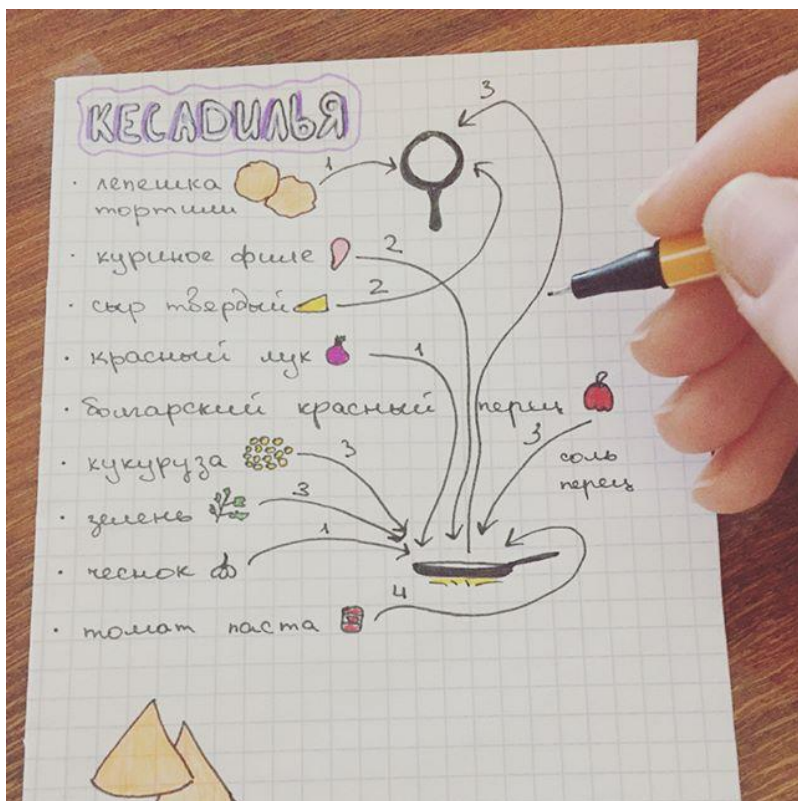 КЕСАДИЛЬЯ
· лепешка
тортили
1
3
· куриное филе
2
· сыр твердый
2
· красный лук
1
· болгарский красный перец
3
соль
перец
· кукуруза
3
· зелень
3
· чеснок
1
· томат паста
4